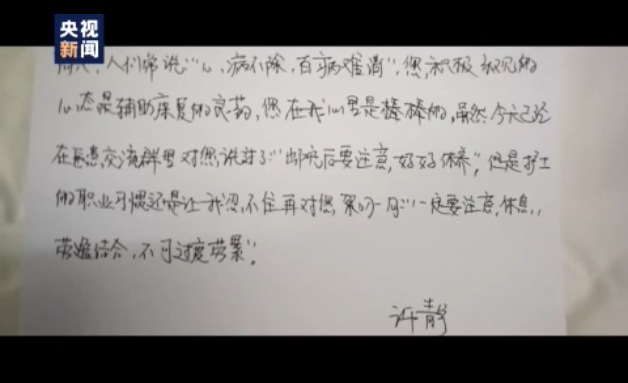 央视
新闻
人们常说“心病不除，百病难消”，您积极乐观的
心态是辅助康复的良药，您在我心里是棒棒的，虽然今天已经
在医患交流群里对您说过了“出院后要注意，好好休养”，但是护士
的职业习惯还是让我忍不住再对您 一句“一定要注意休息，
劳逸结合，不可过度劳累”。
许静